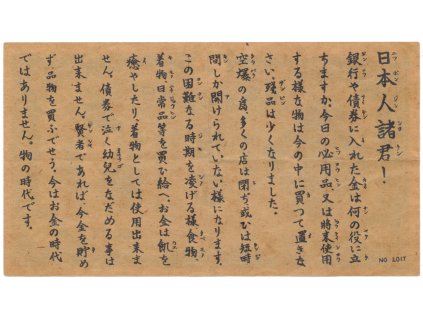 日本人諸君!
銀行や債券に入れた金は何の役に立
ちますか、今日の必用品又は将来使用
する様な物は今の中に買つて置きな
さい、残品は少くなりました。
空爆の為、多くの店は閉ぢ或ひは短時
間しか開けられていない様になります。
この困難なる時期を凌げる様食物
着物日常品等を買ひ給へ、お金は飢を
癒やしたり、着物としては使用出来ま
せん、債券で泣く幼児をなだめる事は
出来ません。賢者であれば今金を貯め
ず、品物を買ふでせう。今はお金の時代
ではありません。物の時代です。
NO 2017